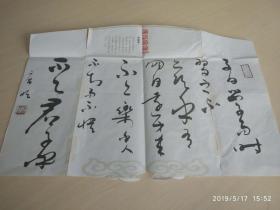 子曰學而時
習之不
亦說乎有
朋自遠方來
不亦樂乎人
不知而不愠
不亦君子乎
2019/5/17 15:52